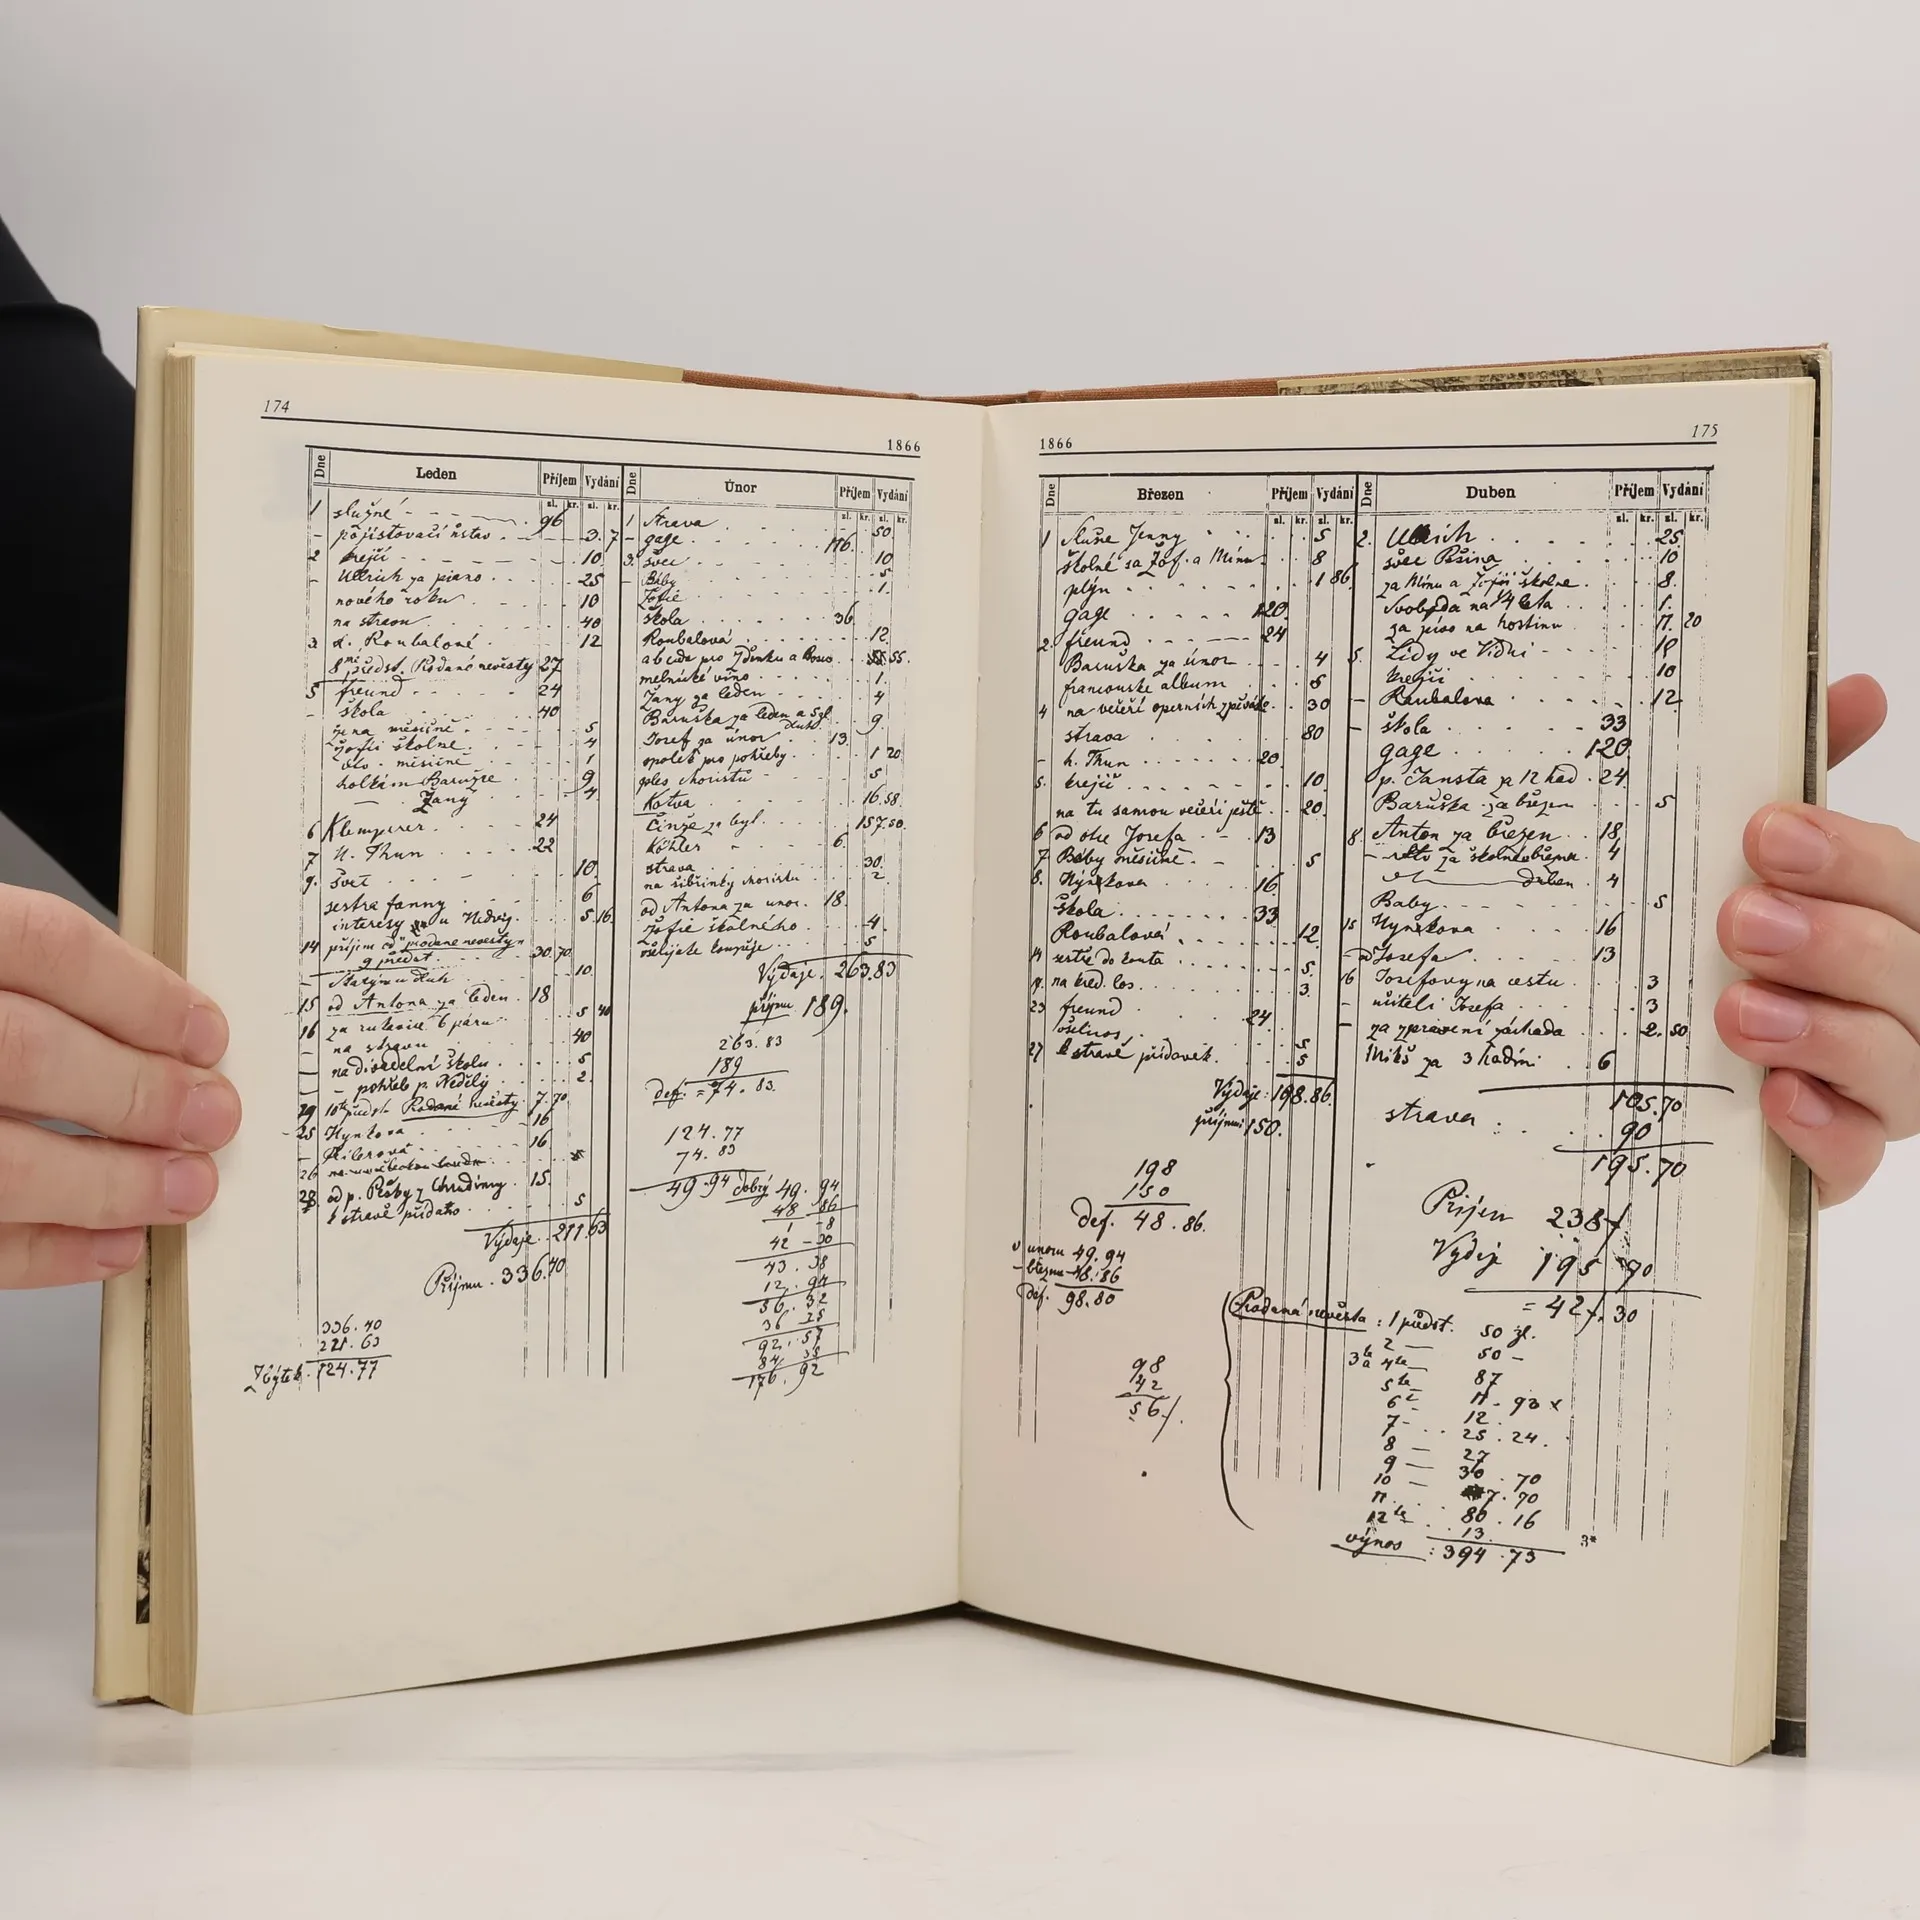 174
1866
Dne Leden Příjem Vydání
zl. kr. zl. kr.
1 služné 96
– pojisťovací ústav 3. 7
2 krejčí 10
– Ullrich za piano 25
nového roku 10
na stravu 40
3 Roubalové 12
8mé předst. Prodané nevěsty 27
5 freund 24
– škola 40
žena měsíčně 5
Žofii školné 4
měsíčné 1
holkám Barušce 9
— Žany 4
6 Klemperer 24
7 H. Thun 22
9. švec 10
sestra fanny 6
interesy u Nedvěj. 5.16
14 příjem od "prodané nevěsty"
9 předst. 30.70
– Starýmu dluh 10
15 od Antona za leden 18
16 za rukavice 6 párů 5 40
— na stravu 40
— na divadelní školu 5
— pohřeb p. Neděly 2
29 10té předst. Prodané nevěsty 7.70
25 Hynkova 16
16
26
28 od p. z Chrudimy 15
k stravě přídavek 5
Výdaje 211.63
Příjmu. 336.40
336.40
221.63
Zbýtek 124.77
Dne Únor Příjem Vydání
zl. kr. zl. kr.
1 Strava 50
– gage 116
3. švec 10
– Báby 5
Žofie 1.
škola 36
Roubalová 12
abceda pro Zdenku a 55
mělnické víno 1.
Žany za leden 4
Baruška za leden a 9
dluh
Josef za únor 13
spolek pro pohřeby 1 20
ples choristů 5
Kotva 16.58
Činže za byt 157.50
Köhler 6
strava 30
na šibřinky choristu 2
od Antona za unor. 18
Žofie školného 4
5
Výdaje. 263.83
příjmu 189.
263.83
189
def. = 74.83
124.77
74.83
49.94 dobrý 49.94
48 86
1 –8
42 –30
43.38
12.94
56.32
36 25
92.57
84 35
176.92
1866
175
Dne Březen Příjem Vydání
zl. kr. zl. kr.
1 Sluze Jenny 5
školné za Žof. a Minu 8
plyn 1 86
gage 120
2. freund 24
Baruška za únor 4
francouské album 5
4 na večeři operních zpěváků 30
strava 80
– h. Thun 20
5. krejčí 10
na tu samou večeři ještě 20
6 od otce Josefa 13
7 Báby měsíčně 5
8. Hynkova 16
škola 33
Roubalová 12
14 sestře do konta 5
na kred. los 3
23 freund 24
5
27 k stravě přídavek 5
Výdaje: 198.86
příjmu: 150.
198
150
def. 48.86.
v unoru 49.94
– březnu 48.86
def. 98.80
98
42
56
Dne Duben Příjem Vydání
zl. kr. zl. kr.
2. Ullrich 25
švec Pšina 10
za Minu a Žofii školné 8
Svoboda na 1/4 leta 1.
za pivo na hostinu 11. 20
5. Lidy ve Vídni 18
krejčí 10
– Roubalova 12
– škola 33
gage 120
p. Jansta za 12 hod 24
Baruška za březen 5
8. Anton za březen 18
– za školné březen 4
— duben 4
Baby 5
15 Hynkova 16
– od Josefa 13
16 Josefovy na cestu 3
– učiteli Josefa 3
– za zpravení záchoda 2.50
Mikš za 3 hodiny 6
105.70
strava 90
195.70
Příjem 238
Vydej 195 70
= 42.30
Prodaná nevěsta : 1 předst. 50 zl.
2 — 50 –
3ta 4ta 87
5ta 11. 93 x
6ta 12
7 – 25.24.
8 — 27
9 — 30.70
10 — 7.70
11. 80.16
12ta 13
výnos : 394.73
3*